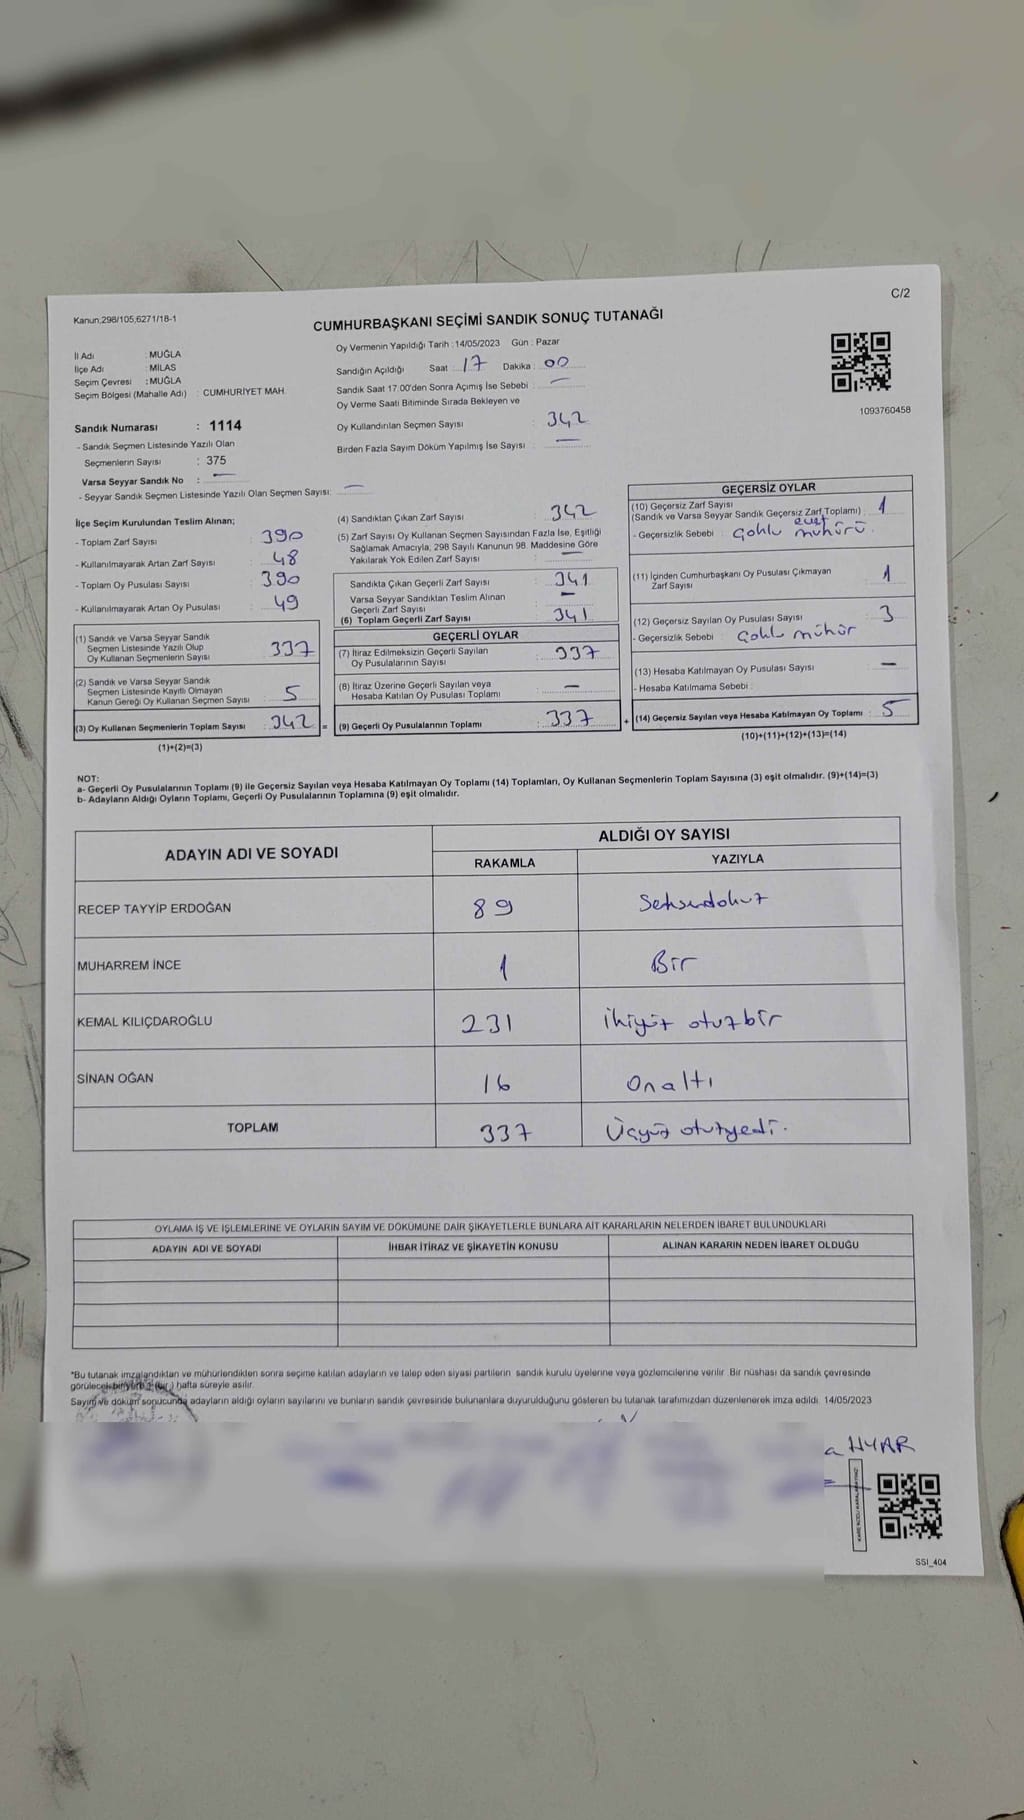 Kanun,298/105,6271/18-1
C/2
CUMHURBAŞKANI SEÇİMİ SANDIK SONUÇ TUTANAĞI
İl Adı : MUĞLA
İlçe Adı : MİLAS
Seçim Çevresi : MUĞLA
Seçim Bölgesi (Mahalle Adı) : CUMHURİYET MAH.
Sandık Numarası : 1114
- Sandık Seçmen Listesinde Yazılı Olan
Seçmenlerin Sayısı : 375
Varsa Seyyar Sandık No : —
- Seyyar Sandık Seçmen Listesinde Yazılı Olan Seçmen Sayısı: —
Oy Vermenin Yapıldığı Tarih : 14/05/2023 Gün : Pazar
Sandığın Açıldığı Saat : 17 Dakika : 00
Sandık Saat 17.00'den Sonra Açımış İse Sebebi : —
Oy Verme Saati Bitiminde Sırada Bekleyen ve
Oy Kullandırılan Seçmen Sayısı : 342
Birden Fazla Sayım Döküm Yapılmış İse Sayısı : —
1093760458
İlçe Seçim Kurulundan Teslim Alınan;
- Toplam Zarf Sayısı : 390
- Kullanılmayarak Artan Zarf Sayısı : 48
- Toplam Oy Pusulası Sayısı : 390
- Kullanılmayarak Artan Oy Pusulası : 49
(1) Sandık ve Varsa Seyyar Sandık
Seçmen Listesinde Yazılı Olup
Oy Kullanan Seçmenlerin Sayısı : 337
(2) Sandık ve Varsa Seyyar Sandık
Seçmen Listesinde Kayıtlı Olmayan
Kanun Gereği Oy Kullanan Seçmen Sayısı : 5
(3) Oy Kullanan Seçmenlerin Toplam Sayısı : 342 =
(1)+(2)=(3)
(4) Sandıktan Çıkan Zarf Sayısı : 342
(5) Zarf Sayısı Oy Kullanan Seçmen Sayısından Fazla İse, Eşitliği
Sağlamak Amacıyla, 298 Sayılı Kanunun 98. Maddesine Göre
Yakılarak Yok Edilen Zarf Sayısı : —
Sandıkta Çıkan Geçerli Zarf Sayısı : 341
Varsa Seyyar Sandıktan Teslim Alınan
Geçerli Zarf Sayısı : —
(6) Toplam Geçerli Zarf Sayısı : 341
GEÇERLİ OYLAR
(7) İtiraz Edilmeksizin Geçerli Sayılan
Oy Pusulalarının Sayısı : 337
(8) İtiraz Üzerine Geçerli Sayılan veya
Hesaba Katılan Oy Pusulası Toplamı : —
(9) Geçerli Oy Pusulalarının Toplamı : 337 +
GEÇERSİZ OYLAR
(10) Geçersiz Zarf Sayısı
(Sandık ve Varsa Seyyar Sandık Geçersiz Zarf Toplamı) : 1
- Geçersizlik Sebebi : çoklu evet mühürü
(11) İçinden Cumhurbaşkanı Oy Pusulası Çıkmayan
Zarf Sayısı : 1
(12) Geçersiz Sayılan Oy Pusulası Sayısı : 3
- Geçersizlik Sebebi : çoklu mühür
(13) Hesaba Katılmayan Oy Pusulası Sayısı : —
- Hesaba Katılmama Sebebi :
(14) Geçersiz Sayılan veya Hesaba Katılmayan Oy Toplamı : 5
(10)+(11)+(12)+(13)=(14)
NOT:
a- Geçerli Oy Pusulalarının Toplamı (9) ile Geçersiz Sayılan veya Hesaba Katılmayan Oy Toplamı (14) Toplamları, Oy Kullanan Seçmenlerin Toplam Sayısına (3) eşit olmalıdır. (9)+(14)=(3)
b- Adayların Aldığı Oyların Toplamı, Geçerli Oy Pusulalarının Toplamına (9) eşit olmalıdır.
ADAYIN ADI VE SOYADI
ALDIĞI OY SAYISI
RAKAMLA YAZIYLA
RECEP TAYYİP ERDOĞAN 89 Seksendokuz
MUHARREM İNCE 1 Bir
KEMAL KILIÇDAROĞLU 231 ikiyüz otuzbir
SİNAN OĞAN 16 Onaltı
TOPLAM 337 Üçyüz otuzyedi.
OYLAMA İŞ VE İŞLEMLERİNE VE OYLARIN SAYIM VE DÖKÜMÜNE DAİR ŞİKAYETLERLE BUNLARA AİT KARARLARIN NELERDEN İBARET BULUNDUKLARI
ADAYIN ADI VE SOYADI İHBAR İTİRAZ VE ŞİKAYETİN KONUSU ALINAN KARARIN NEDEN İBARET OLDUĞU
*Bu tutanak imzalandıktan ve mühürlendikten sonra seçime katılan adayların ve talep eden siyasi partilerin sandık kurulu üyelerine veya gözlemcilerine verilir. Bir nüshası da sandık çevresinde
görülecek bir yere 1 (bir) hafta süreyle asılır.
Sayım ve döküm sonucunda adayların aldığı oyların sayılarını ve bunların sandık çevresinde bulunanlara duyurulduğunu gösteren bu tutanak tarafımızdan düzenlenerek imza edildi. 14/05/2023
SSI_404